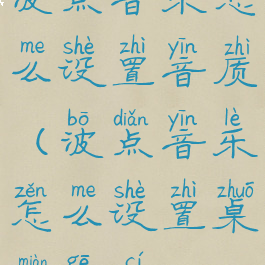 波点音乐怎
me shè zhì yīn zhì
么设置音质
bō diǎn yīn lè
(波点音乐
zěn me shè zhì zhuō
怎么设置桌
miàn gē cí